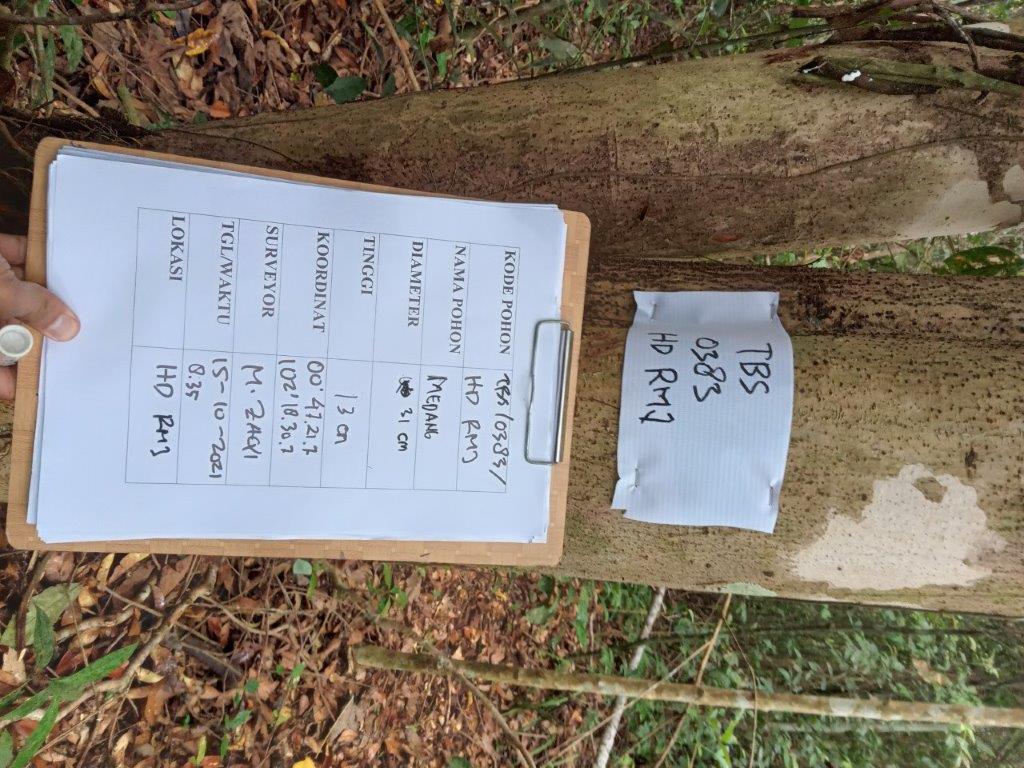 TBS
0383
HD RMJ
KODE POHON TBS/0383/
HD RMJ
NAMA POHON MEDANG
DIAMETER 31 cm
TINGGI 13 cm
KOORDINAT 00' 47.21.7
102' 18.30.7
SURVEYOR M. ZAQI
TGL/WAKTU 15-10-2021
8.35
LOKASI HD RMJ